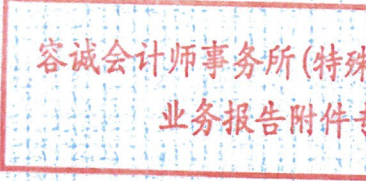 容诚会计师事务所(特殊
业务报告附件专